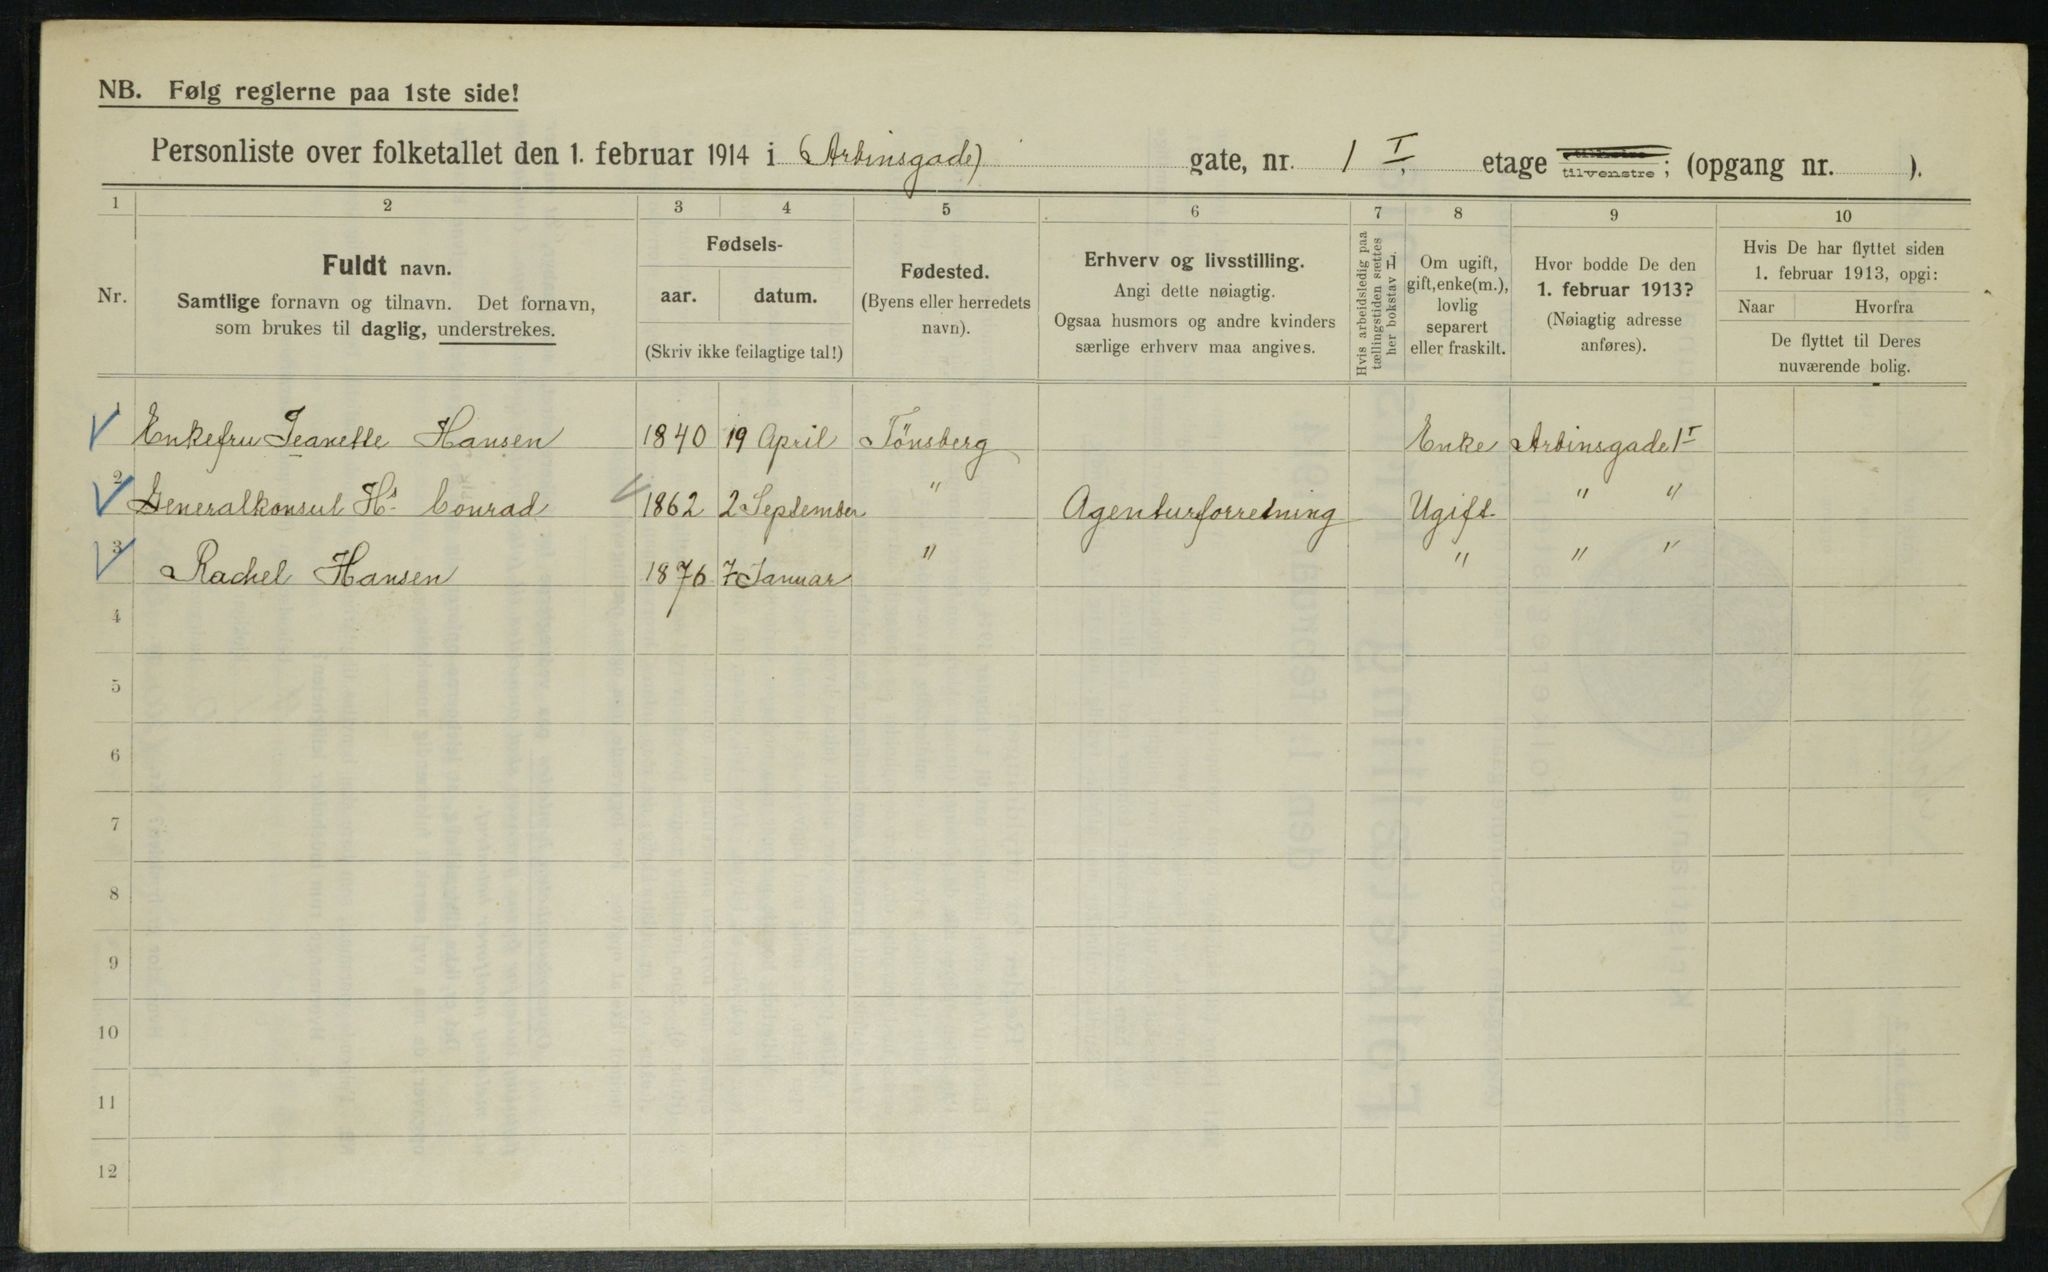 NB. Følg reglerne paa 1ste side!
Personliste over folketallet den 1. februar 1914 i (Arbinsgade) gate, nr. 1 I, etage tilvenstre; (opgang nr. ).
1 2 3 4 5 6 7 8 9 10
Nr.
Fuldt navn.
Samtlige fornavn og tilnavn. Det fornavn,
som brukes til daglig, understrekes.
Fødsels-
aar. datum.
(Skriv ikke feilagtige tal!)
Fødested.
(Byens eller herredets
navn).
Erhverv og livsstilling.
Angi dette nøiagtig.
Ogsaa husmors og andre kvinders
særlige erhverv maa angives.
Hvis arbeidsledig paa
tællingstiden sættes
her bokstav L.
Om ugift,
gift, enke(m.),
lovlig
separert
eller fraskilt.
Hvor bodde De den
1. februar 1913?
(Nøiagtig adresse
anføres).
Hvis De har flyttet siden
1. februar 1913, opgi:
Naar Hvorfra
De flyttet til Deres
nuværende bolig.
1 Enkefru Jeanette Hansen 1840 19 April Tönsberg Enke Arbinsgade 1 I
2 Generalkonsul Hs. Conrad 1862 2 September " Agenturforretning Ugift " "
3 Rachel Hansen 1876 7 Januar " " " "
4
5
6
7
8
9
10
11
12